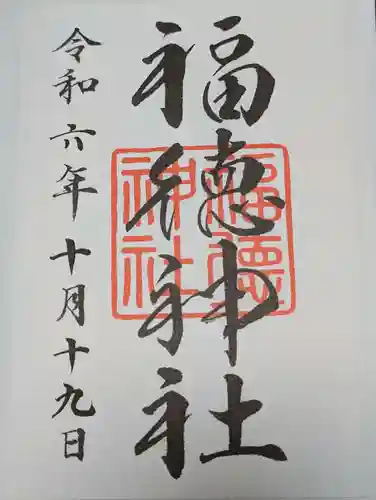 福徳神社
福德神社
令和六年十月十九日